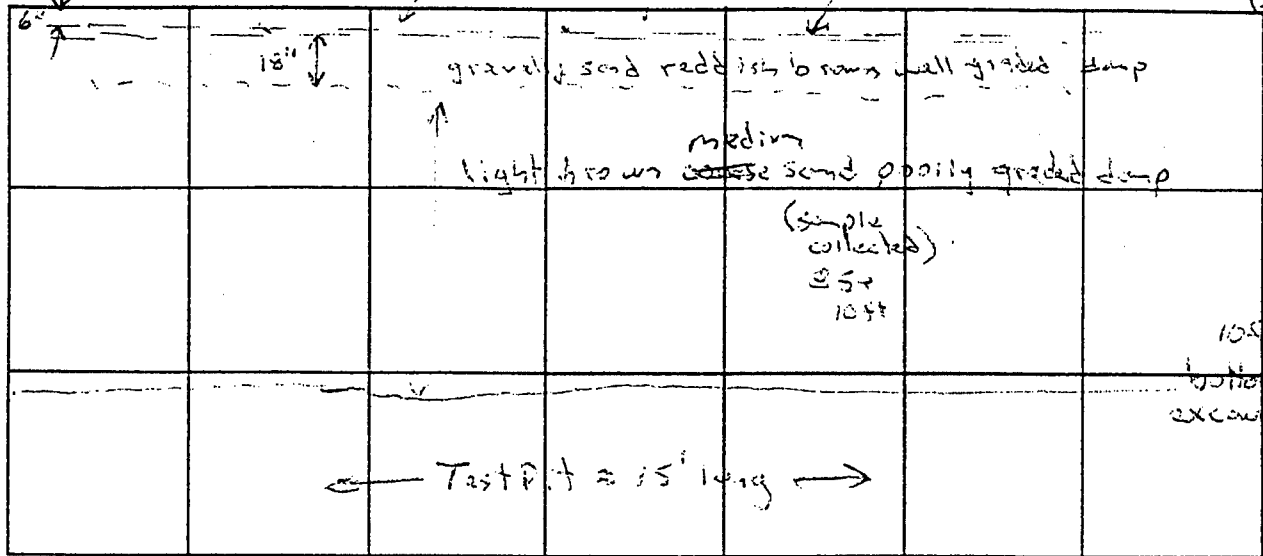 6"
18"
gravelly sand reddish brown well graded damp
medium
light brown coarse sand poorly graded damp
(sample
collected)
10 ft
bottom
excav
Test Pit ≈ 15' long